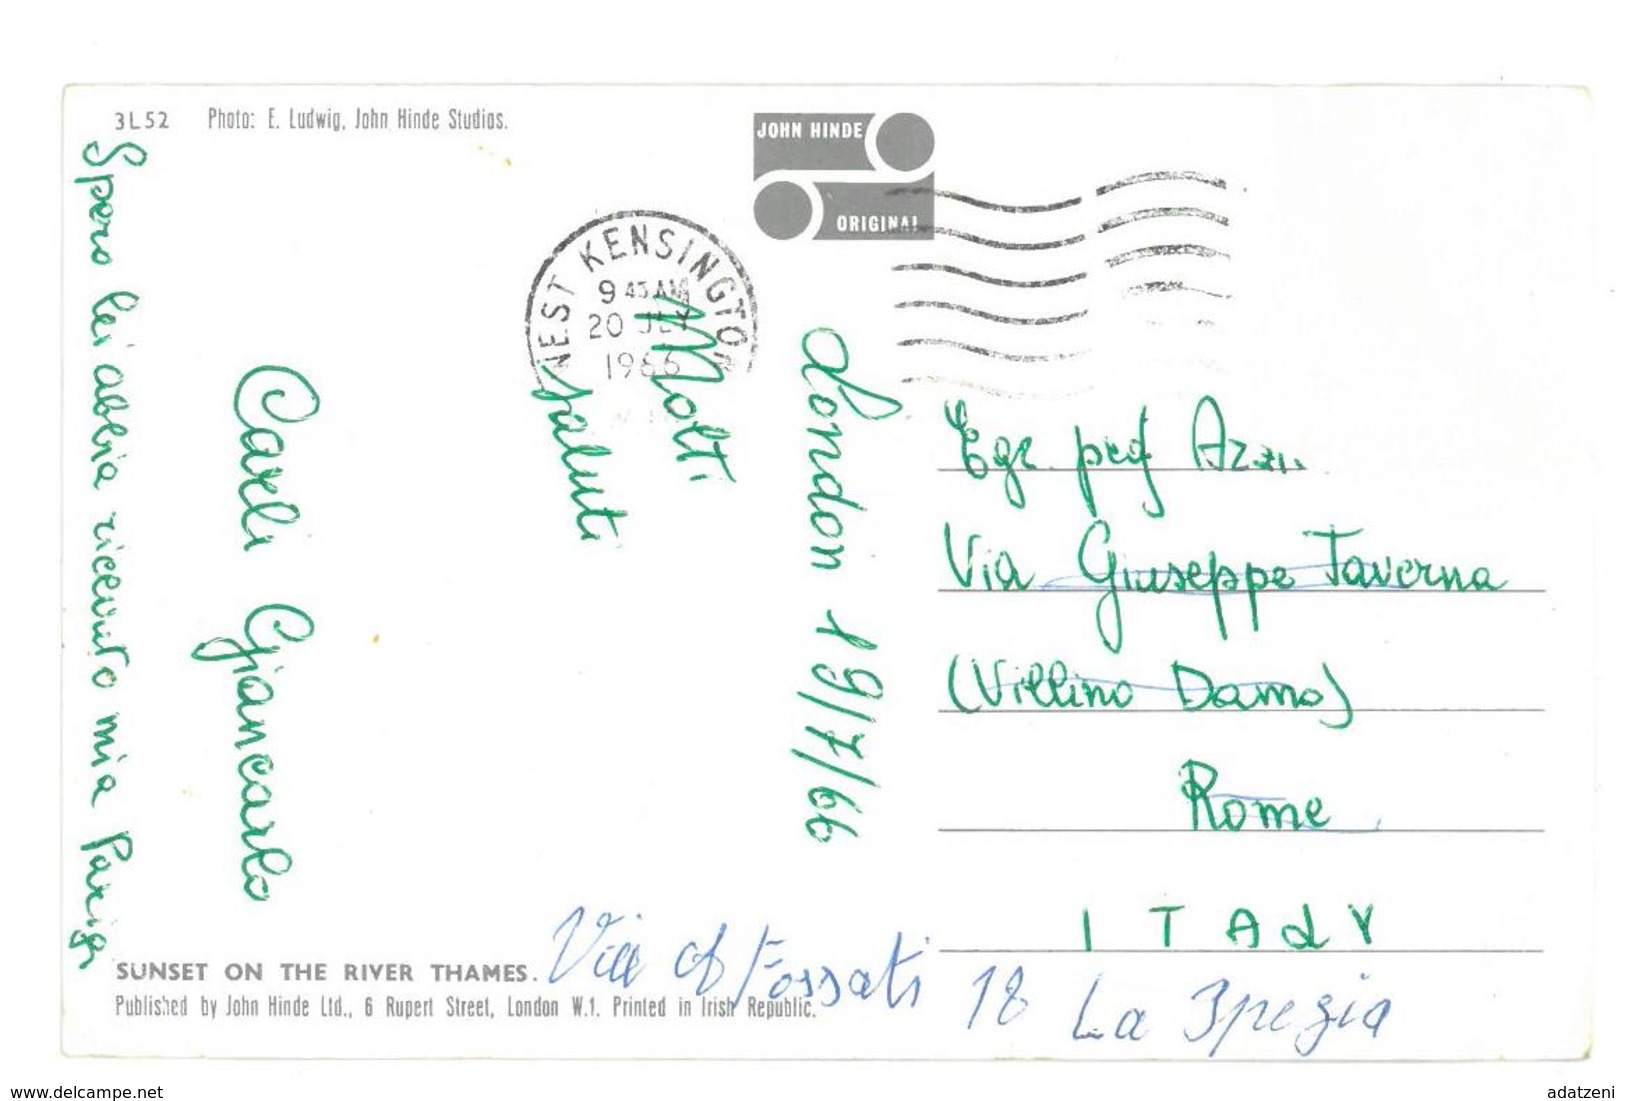 3L52 Photo: E. Ludwig, John Hinde Studios.
JOHN HINDE
ORIGINAL
WEST KENSINGTON
9 45 AM
20 JLY
1966
London 19/7/66
Molti
saluti
Carli Giancarlo
Spero lei abbia ricevuto mia Parigi
Egr. prof Azzi..
Via Giuseppe Taverna
(Villino Damo)
Rome
ITALY
Via Fossati 18 La Spezia
SUNSET ON THE RIVER THAMES.
Published by John Hinde Ltd., 6 Rupert Street, London W.1. Printed in Irish Republic.
www.delcampe.net
adatzeni